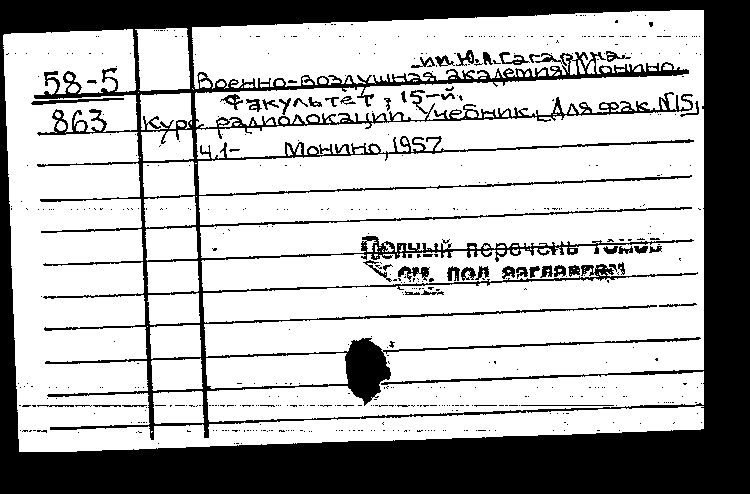 им. Ю.А.Гагарина.
58-5 Военно-воздушная академия Монино.
Факультет, 15-й.
863 Курс радиолокации. Учебник. Для фак. №15.
ч.1- Монино, 1957
Полный перечень томов
см. под заглавием